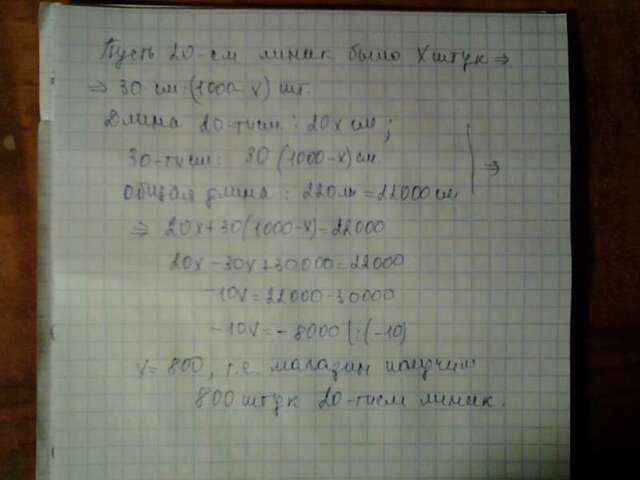 Пусть 20-см линик было X штук ⇒
⇒ 30 см: (1000-x) шт.
Длина 20-тисм: 20x см;
30-тисм: 30 (1000-x) см ⇒
общая длина: 220м = 22000 см
⇒ 20x+30(1000-x)=22000
20x-30x+30000=22000
-10x=22000-30000
-10x=-8000 |:(-10)
x=800, т.е. магазин получил
800 штук 20-тисм линик.